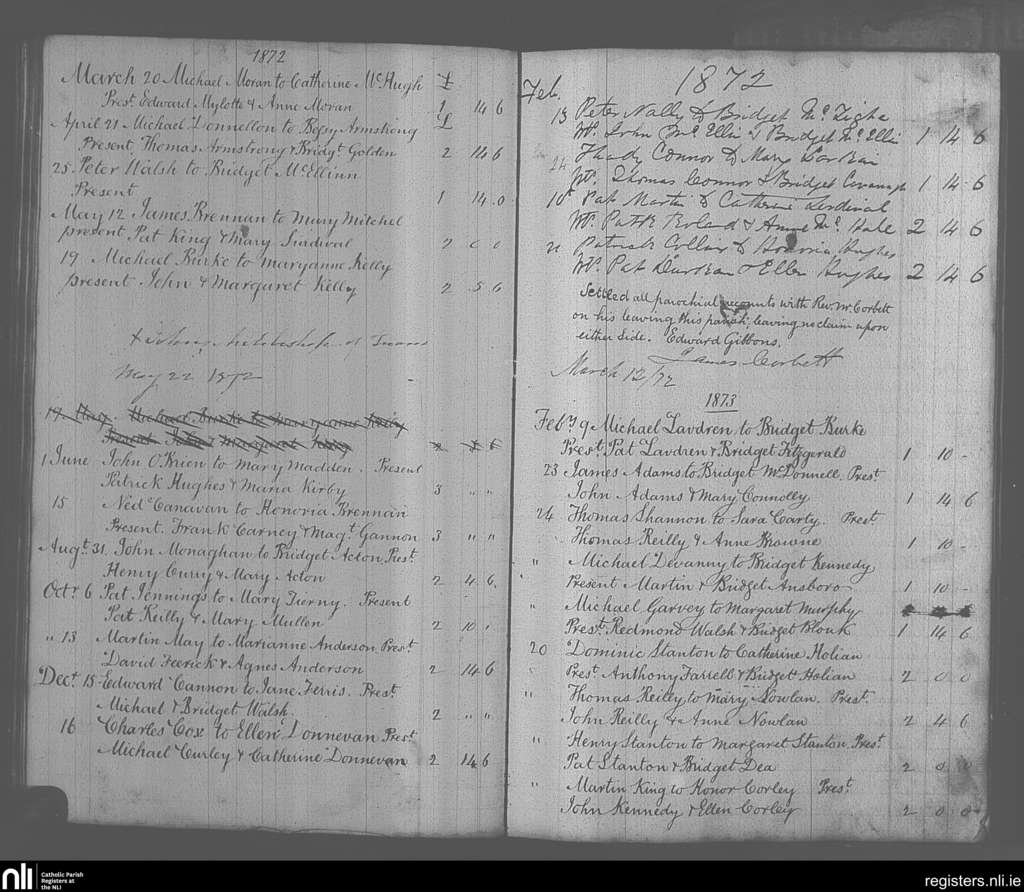 1872
March 20 Michael Moran to Catherine McHugh £
Prest. Edward Mylotte & Anne Moran 1 14 6
April 21 Michael Donnellon to Bessy Armstrong £
Present Thomas Armstrong & Bridgt. Golden 2 14 6
25 Peter Walsh to Bridget McEllinn
Present 1 14 0
May 12 James Brennan to Mary Mitchel
present Pat King & Mary Surdival 2 0 0
19 Michael Burke to Maryanne Kelly
present John & Margaret Kelly 2 5 6
of Tuam
May 22 1872
19 May Michael Burke to Maryanne Kelly
Present John & Margaret Kelly
1 June John O'Brien to Mary Madden. Present
Patrick Hughes & Maria Kirby 3 " "
15 Ned Canavan to Honoria Brennan
Present. Frank Carney & Magt. Gannon 3 " "
Augt. 31. John Monaghan to Bridget Acton Prest.
Henry Curry & Mary Acton 2 4 6
Octr. 6 Pat Jennings to Mary Tierny. Present
Pat Reilly & Mary Mullen 2 10 "
" 13 Martin May to Marianne Anderson Prest.
David Feerick & Agnes Anderson 2 14 6
Dect. 15 Edward Cannon to Jane Ferris. Prest.
Michael & Bridget Walsh. 2 " "
16 Charles Cox to Ellen Donnevan Prest.
Michael Curley & Catherine Donnevan 2 14 6
1872
Feb.
13 Peter Nally & Bridget McTighe
Wt. John McElli & Bridget McElli 1 14 6
Thady Connor & Mary
Wt. Thomas Connor & Bridget Cavanagh 1 14 6
10th Pat Martin & Catherine Surdival
Wt. Patk Boland & Anne McHale 2 14 6
Patrick & Honoria Hughes
Wt. Pat & Ellen Hughes 2 14 6
Settled all parochial accounts with Rev. W. Corbett
on his leaving this parish, leaving no claim upon
either side. Edward Gibbons.
James Corbett
March 12/72
1873
Feby. 9 Michael Lavdren to Bridget Burke
Prest. Pat Lavdren & Bridget Fitzgerald 1 10 -
23 James Adams to Bridget McDonnell. Prest.
John Adams & Mary Connolly 1 14 6
24 Thomas Shannon to Sara Carty. Prest
Thomas Reilly & Anne Browne 1 10 -
" Michael Devanny to Bridget Kennedy
Present Martin & Bridget Ansboro 1 10 -
" Michael Garvey to Margaret Murphy
Prest. Redmond Walsh & Bridget Blouk 1 14 6
20 Dominic Stanton to Catherine Holian
Prest. Anthony Farrell & Bridget Holian 2 0 0
" Thomas Reilly to Mary Nowlan. Prest.
John Reilly & Anne Nowlan 2 4 6
" Henry Stanton to Margaret Stanton. Prest.
Pat Stanton & Bridget Dea 2 0 0
" Martin King to Honor Corley Prest.
John Kennedy & Ellen Corley 2 0 0
nli
Catholic Parish
Registers at
the NLI
registers.nli.ie